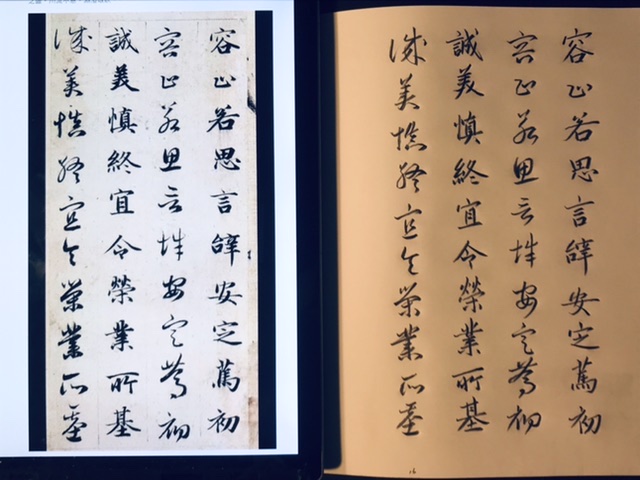 容止若思言辭安定篤初
容止若思言辭安定篤初
誠美慎終宜令榮業所基
誠美慎終宜令榮業所基
容止若思言辭安定篤初
容止若思言辭安定篤初
誠美慎終宜令榮業所基
誠美慎終宜令榮業所基